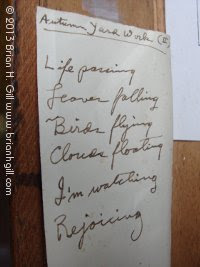 Autumn Yard Work (II)
Life passing
Leaves falling
Birds flying
Clouds floating
I'm watching
Rejoicing
© 2013 Brian H. Gill www.brianhgill.com